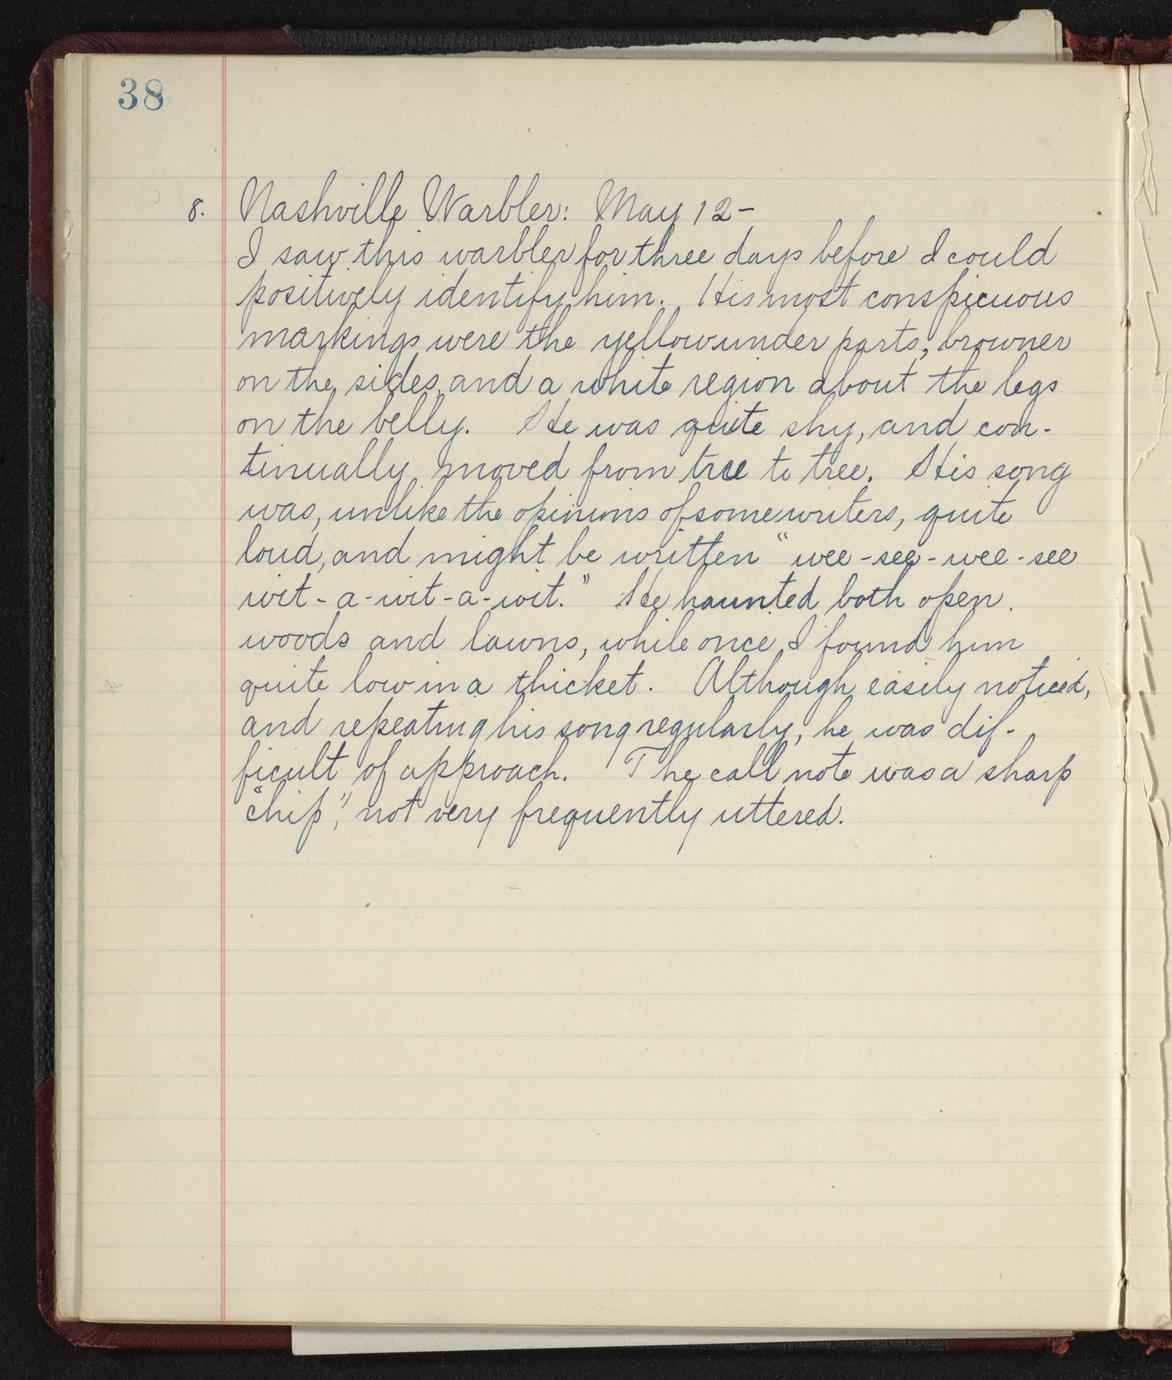 38
8. Nashville Warbler: May 12-
I saw this warbler for three days before I could
positively identify him. His most conspicuous
markings were the yellow under parts, browner
on the sides, and a white region about the legs
on the belly. He was quite shy, and con-
tinually moved from tree to tree. His song
was, unlike the opinions of some writers, quite
loud, and might be written "wee-see-wee-see
wit-a-wit-a-wit." He haunted both open
woods and lawns, while once I found him
quite low in a thicket. Although easily noticed,
and repeating his song regularly, he was dif-
ficult of approach. The call note was a sharp
"chip", not very frequently uttered.